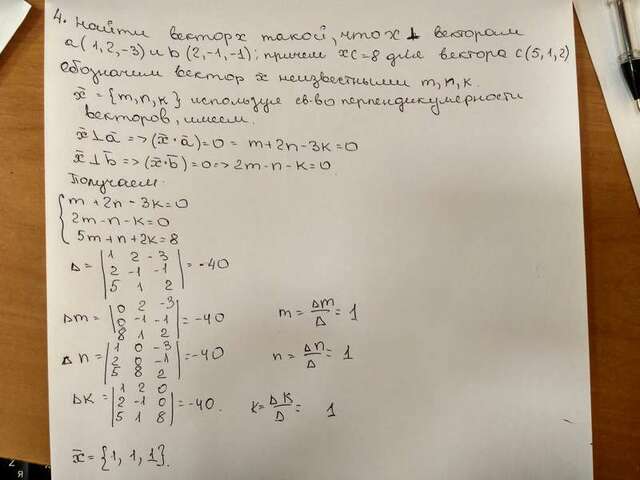 4. Найти вектор x такой, что x ⊥ векторам
a(1,2,-3) и b (2,-1,-1); причем xc=8 для вектора c(5,1,2)
обозначим вектор x неизвестными m,n,k.
x̄ = {m,n,k} используя св-во перпендикулярности
векторов, имеем.
x̄⊥ā => (x̄·ā)=0 = m+2n-3k=0
x̄⊥b̄ => (x̄·b̄)=0 => 2m-n-k=0
Получаем:
{ m+2n-3k=0
2m-n-k=0
5m+n+2k=8
Δ= | 1 2 -3
2 -1 -1
5 1 2 | = -40
Δm = | 0 2 -3
0 -1 -1
8 1 2 | = -40 m = Δm/Δ = 1
Δn = | 1 0 -3
2 0 -1
5 8 2 | = -40 n = Δn/Δ = 1
Δk = | 1 2 0
2 -1 0
5 1 8 | = -40. k = Δk/Δ = 1
x̄ = {1, 1, 1}.